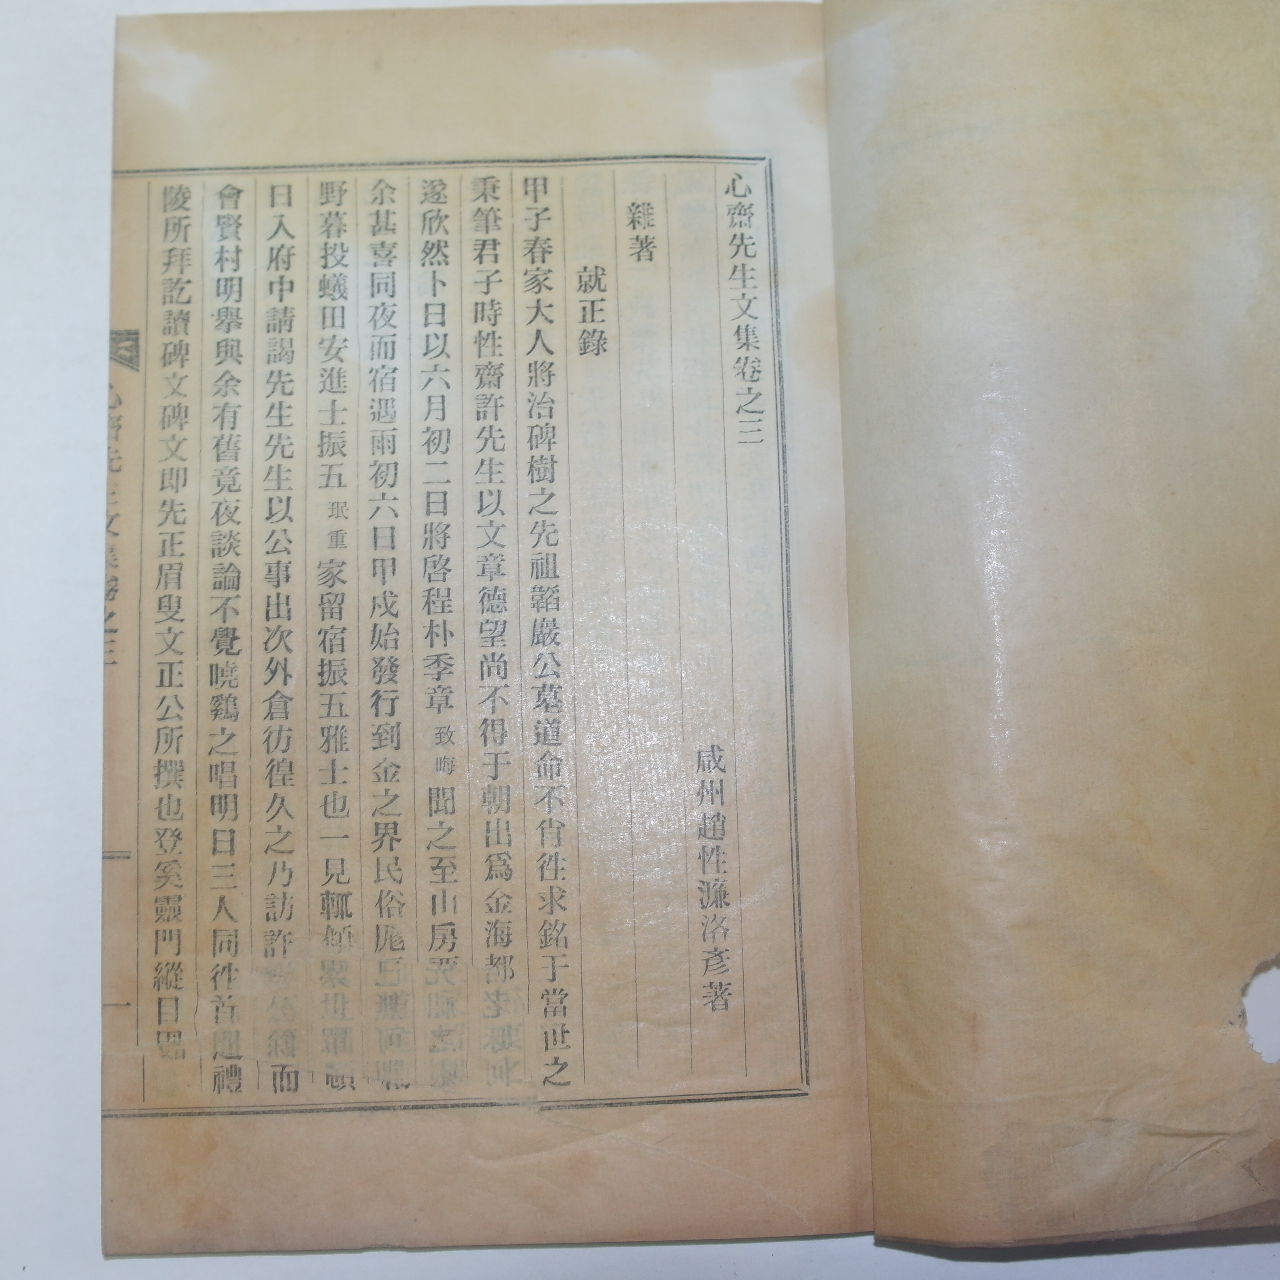 心齋先生文集卷之三
咸州趙性濂洛彥著
雜著
就正錄
甲子春家大人將治碑樹之先祖韜巖公墓道命不肖徃求銘于當世之
秉筆君子時性齋許先生以文章德望尚不得于朝出爲金海都
遂欣然卜日以六月初二日將啓程朴季章致晦聞之至山房
余甚喜同夜而宿遇雨初六日甲戌始發行到金之界民俗
野暮投蟻田安進士振五珉重家留宿振五雅士也一見輒傾
日入府中請謁先生先生以公事出次外倉彷徨久之乃訪許而
會賢村明擧與余有舊竟夜談論不覺曉鷄之唱明日三人同徃首禮
陵所拜訖讀碑文碑文即先正眉叟文正公所撰也登奚靈門縱目
心齋先生文集卷之三
一